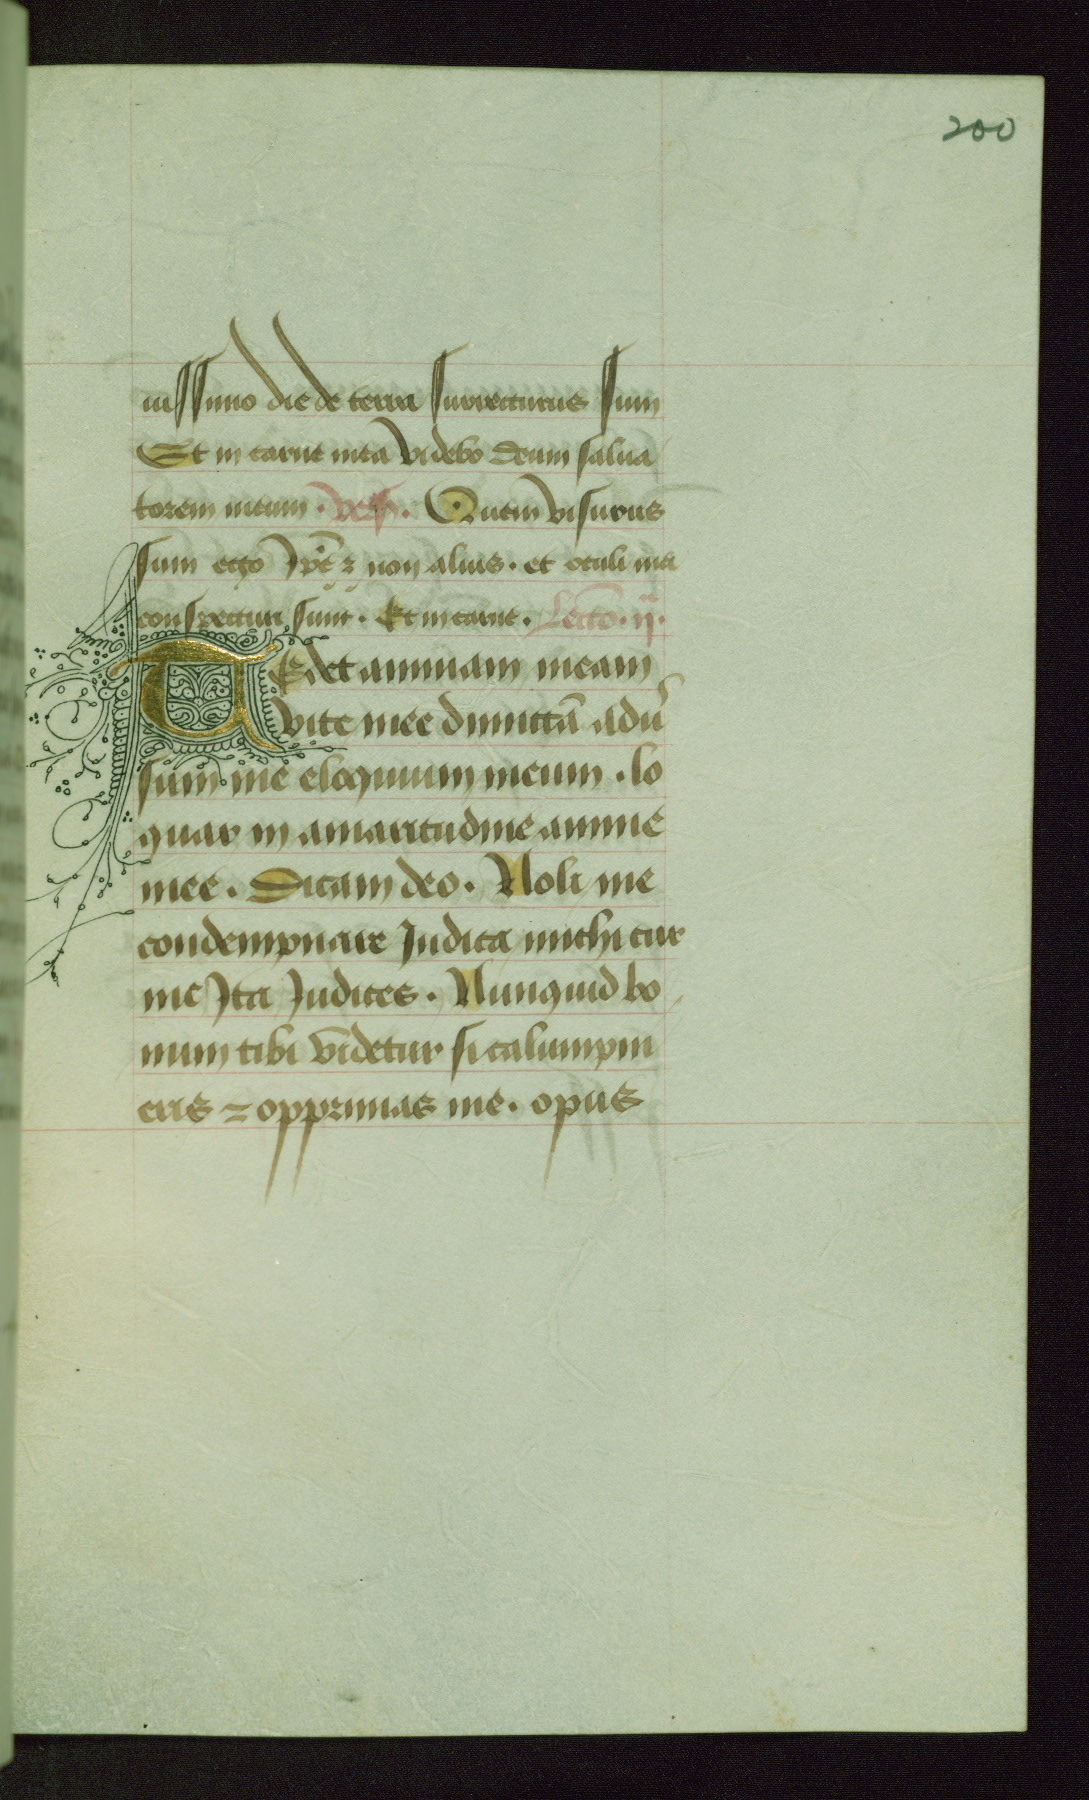 200
uissimo die de terra surrecturus sum
Et in carne mea videbo deum salua
torem meum . vers. Quem visurus
sum ego ip̄e ⁊ non alius . et oculi mei
conspecturi sunt . Et in carne . Lectō . ij .
TEdet animam meam
vite mee dimittā aduͬ
sum me eloquium meum . lo
quar in amaritudine anime
mee . Dicam deo . Noli me
condempnare Indica michi cur
me Ita Iudices . Nunquid bo
num tibi videtur si calumpni
eris ⁊ opprimas me . opus